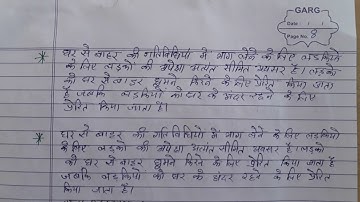 GARG
Date : / /
Page No. 8
* घर से बाहर की गतिविधियो में भाग लेने के लिए लडकियो
के लिए लडको की अपेक्षा अत्यंत सीमित अवसर है। लडको
को घर से बाहर घूमने फिरने के लिए प्रेरित किया जाता
है जबकि लडकियो को घर के अंदर रहने के लिए
प्रेरित किया जाता है।
* घर से बाहर की गतिविधियो में भाग लेने के लिए लडकियो
के लिए लडको की अपेक्षा अत्यंत सीमित अवसर है। लडको
को घर से बाहर घूमने फिरने के लिए प्रेरित किया जाता है
जबकि लडकियो को घर के अंदर रहने के लिए प्रेरित
किया जाता है।